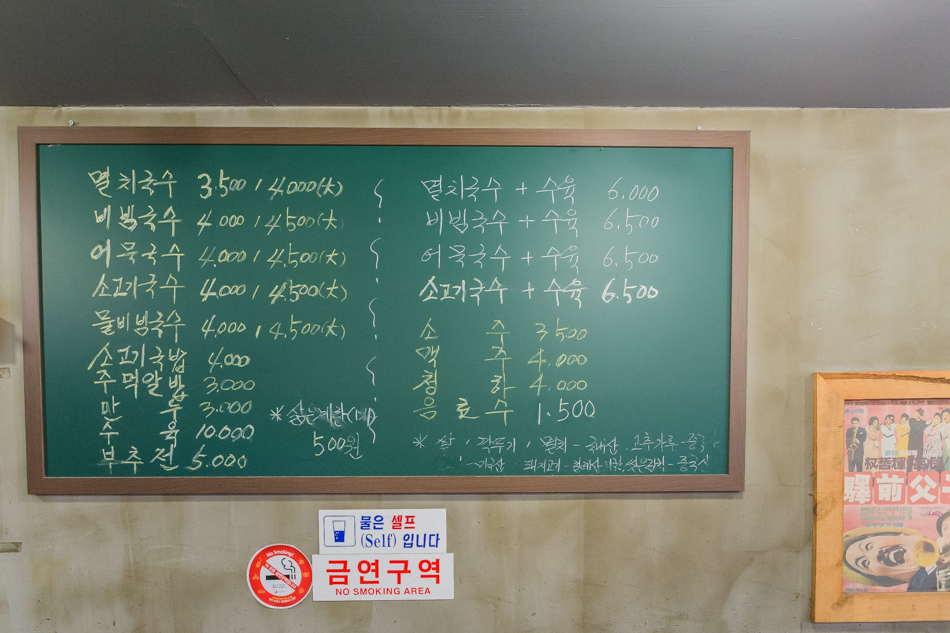 멸치국수 3.500 / 4.000(大)
비빔국수 4.000 / 4.500(大)
어묵국수 4.000 / 4.500(大)
소고기국수 4.000 / 4.500(大)
물비빔국수 4.000 / 4.500(大)
소고기국밥 4.000
주먹알밥 3.000
만두 3.000
수육 10.000
부추전 5.000
* 삶은계란
500원
멸치국수 + 수육 6.000
비빔국수 + 수육 6.500
어묵국수 + 수육 6.500
소고기국수 + 수육 6.500
소주 3.500
맥주 4.000
청하 4.000
음료수 1.500
* 쌀 / 깍두기 / 멸치 - 국내산 고춧가루 - 중국
물은 셀프
(Self) 입니다
금연구역
NO SMOKING AREA
No Smoking!
驛前父子